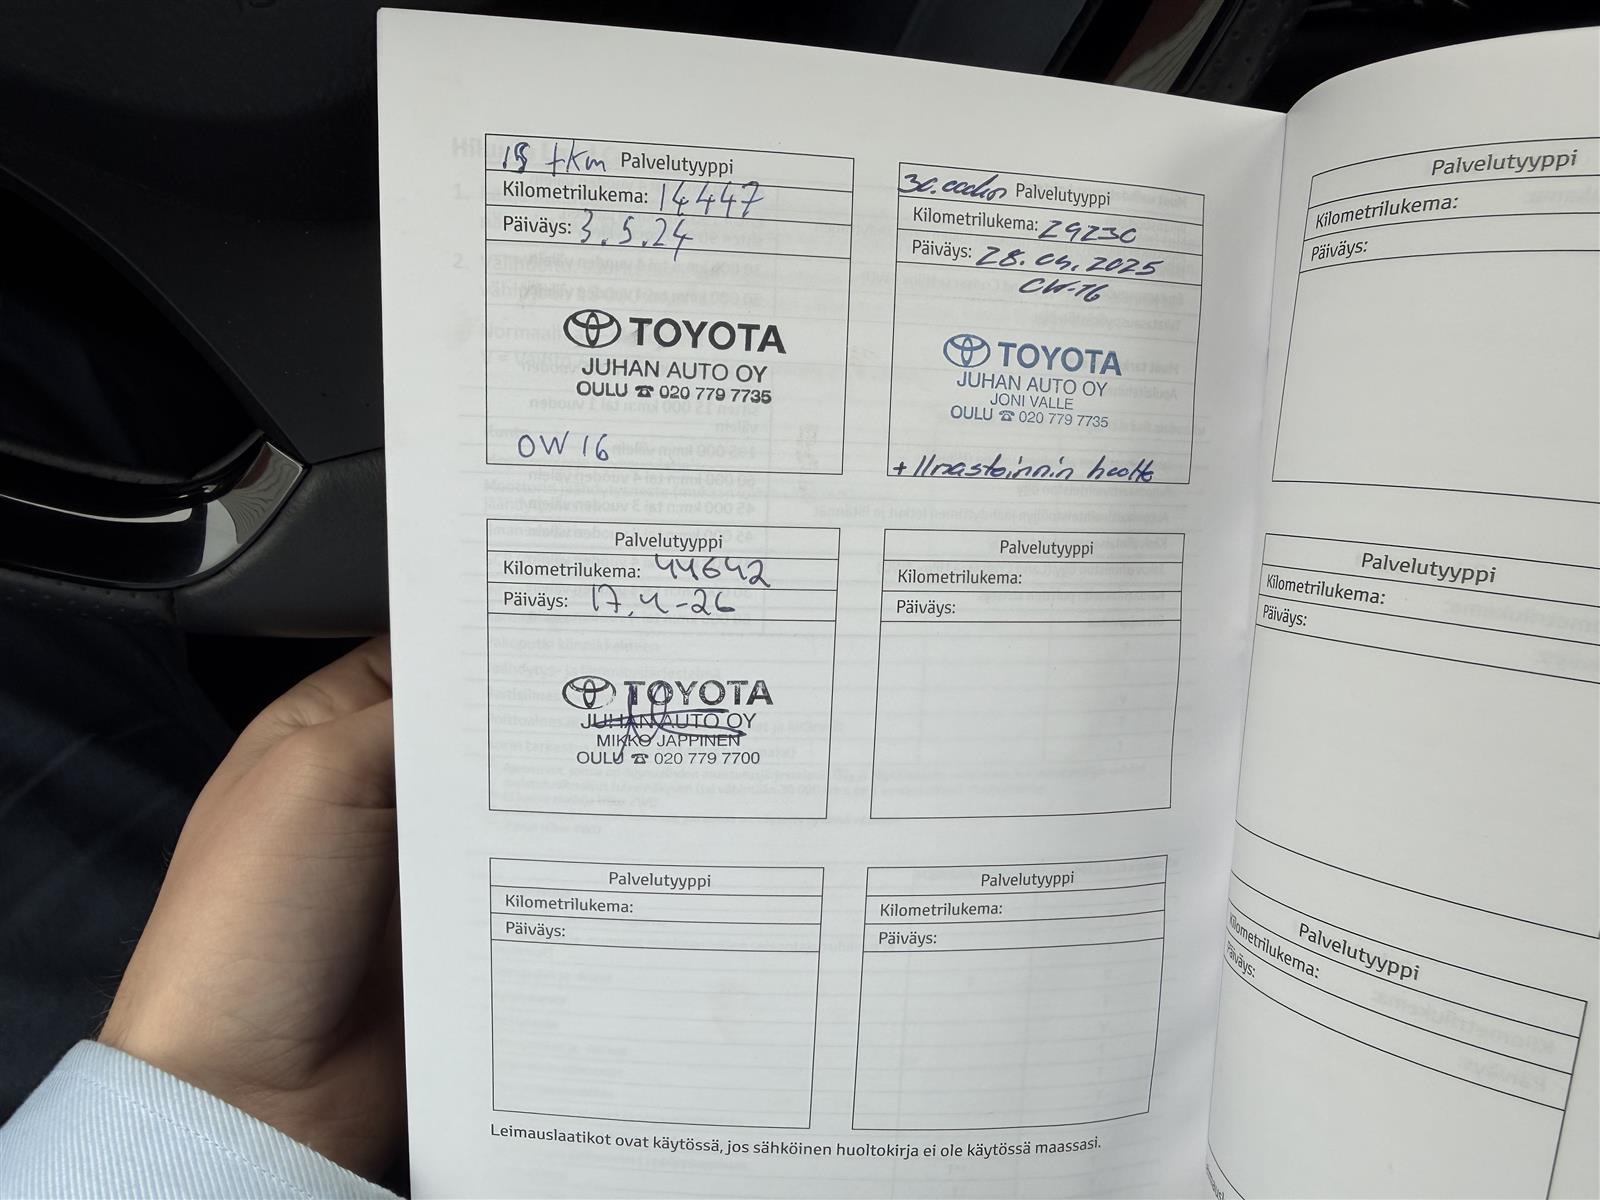 15 tkm Palvelutyyppi
Kilometrilukema: 14447
Päiväys: 3.5.24
TOYOTA
JUHAN AUTO OY
OULU ☎ 020 779 7735
OW 16
30.000km Palvelutyyppi
Kilometrilukema: 29230
Päiväys: 28.04.2025
OW-16
TOYOTA
JUHAN AUTO OY
JONI VALLE
OULU ☎ 020 779 7735
+ Ilmastoinnin huolto
Palvelutyyppi
Kilometrilukema: 44642
Päiväys: 17.4-26
TOYOTA
JUHAN AUTO OY
MIKKO JÄPPINEN
OULU ☎ 020 779 7700
Palvelutyyppi
Kilometrilukema:
Päiväys:
Palvelutyyppi
Kilometrilukema:
Päiväys:
Palvelutyyppi
Kilometrilukema:
Päiväys:
Leimauslaatikot ovat käytössä, jos sähköinen huoltokirja ei ole käytössä maassasi.
Palvelutyyppi
Kilometrilukema:
Päiväys:
Palvelutyyppi
Kilometrilukema:
Päiväys:
Palvelutyyppi
Kilometrilukema:
Päiväys: